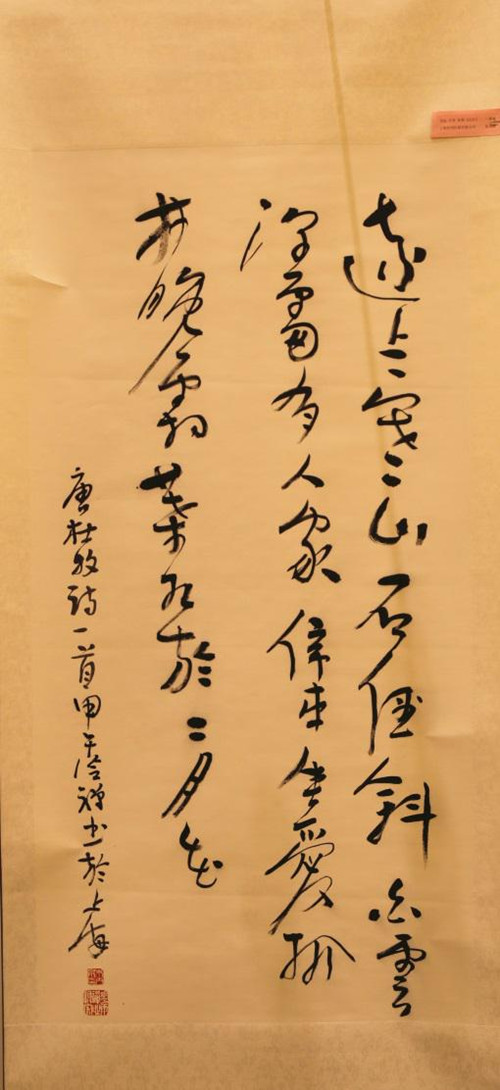 遠上寒山石徑斜白雲
深處有人家停車坐愛楓
林晚霜葉紅於二月花
唐杜牧詩一首甲午禪書於上海